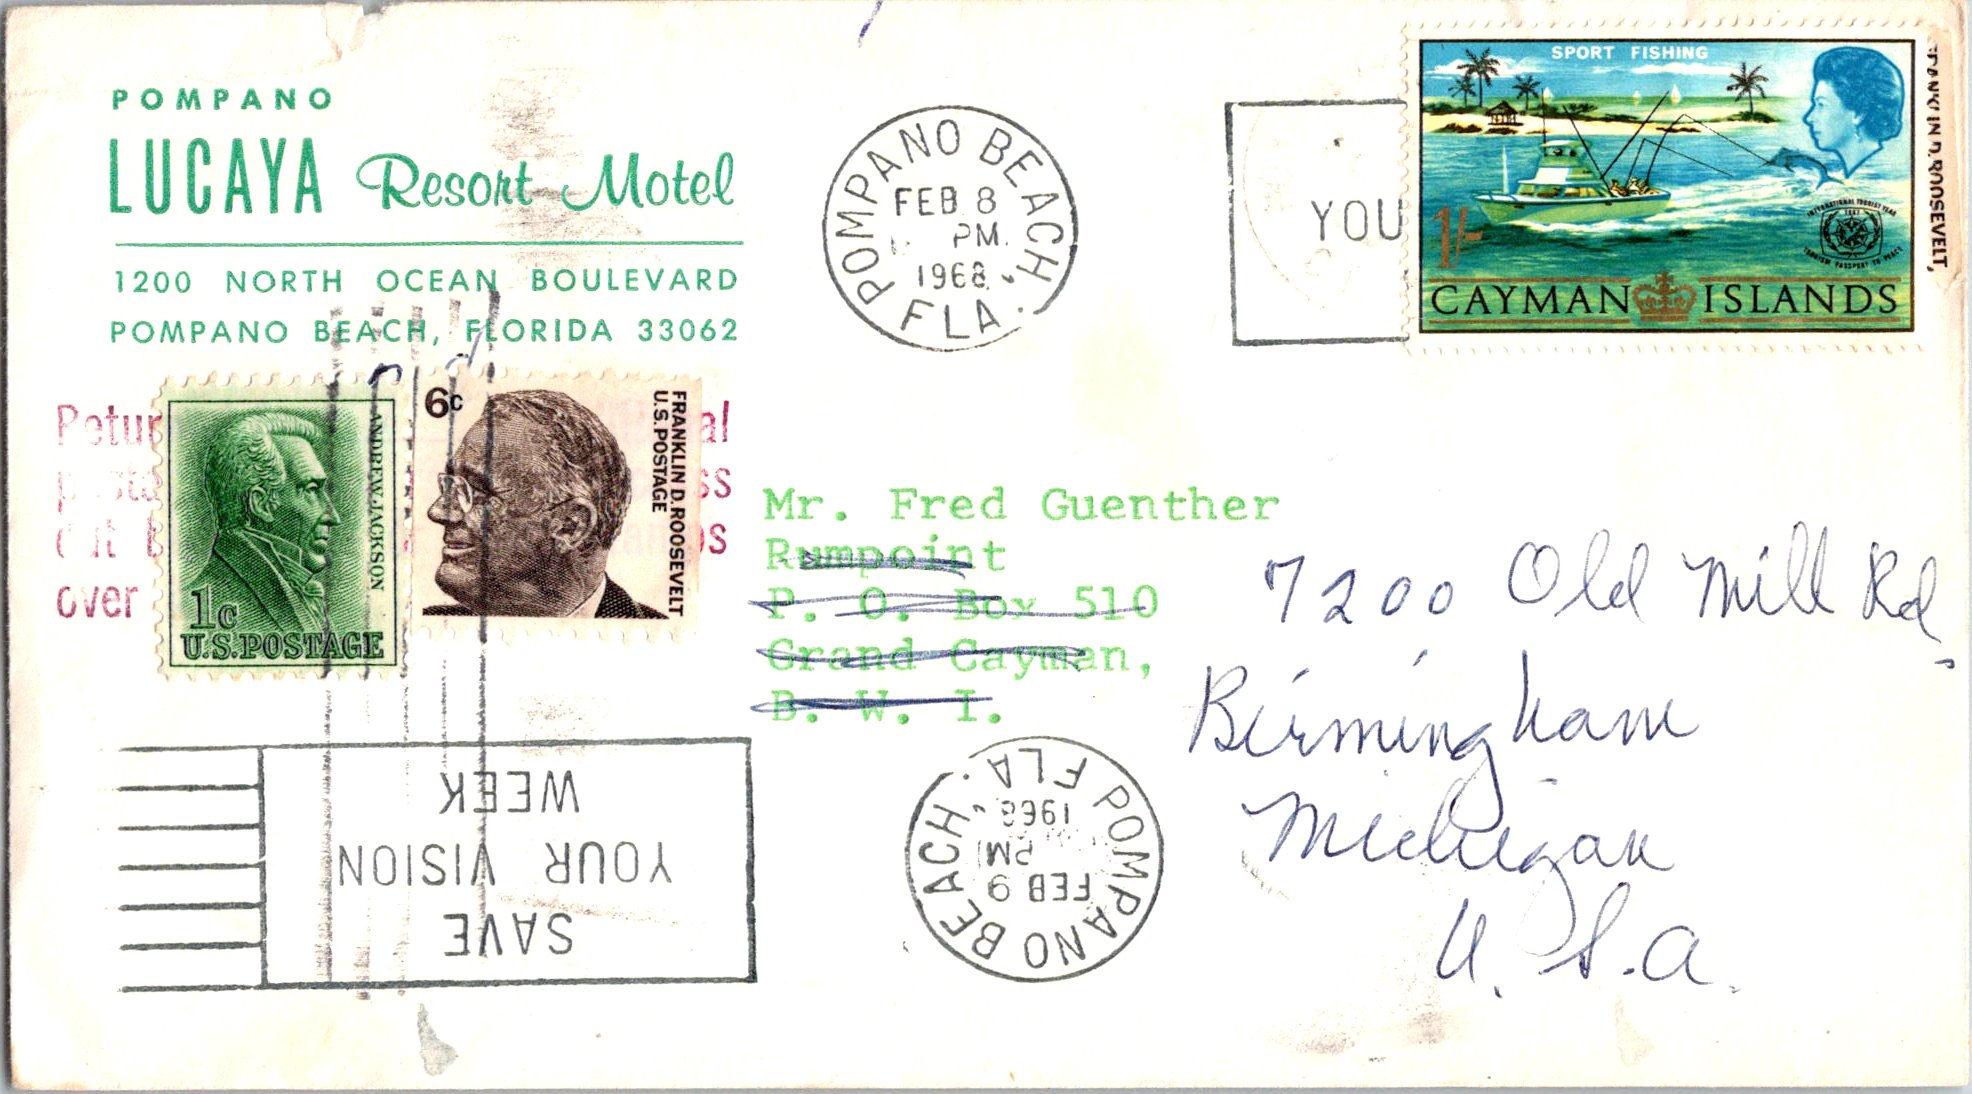 POMPANO
LUCAYA Resort Motel
1200 NORTH OCEAN BOULEVARD
POMPANO BEACH, FLORIDA 33062
POMPANO BEACH
FEB 8
PM
1968
FLA.
YOU
SPORT FISHING
1/-
INTERNATIONAL TOURIST YEAR
1967
TOURISM PASSPORT TO PEACE
CAYMAN ISLANDS
FRANKLIN D. ROOSEVELT,
ANDREW JACKSON
1c
U.S. POSTAGE
6c
FRANKLIN D. ROOSEVELT
U.S. POSTAGE
over
Mr. Fred Guenther
Rumpoint
P. O. Box 510
Grand Cayman,
B. W. I.
7200 Old Mill Rd.
Birmingham
Michigan
U. S. A.
SAVE
YOUR VISION
WEEK
POMPANO BEACH
FEB 9
PM
1968
FLA.